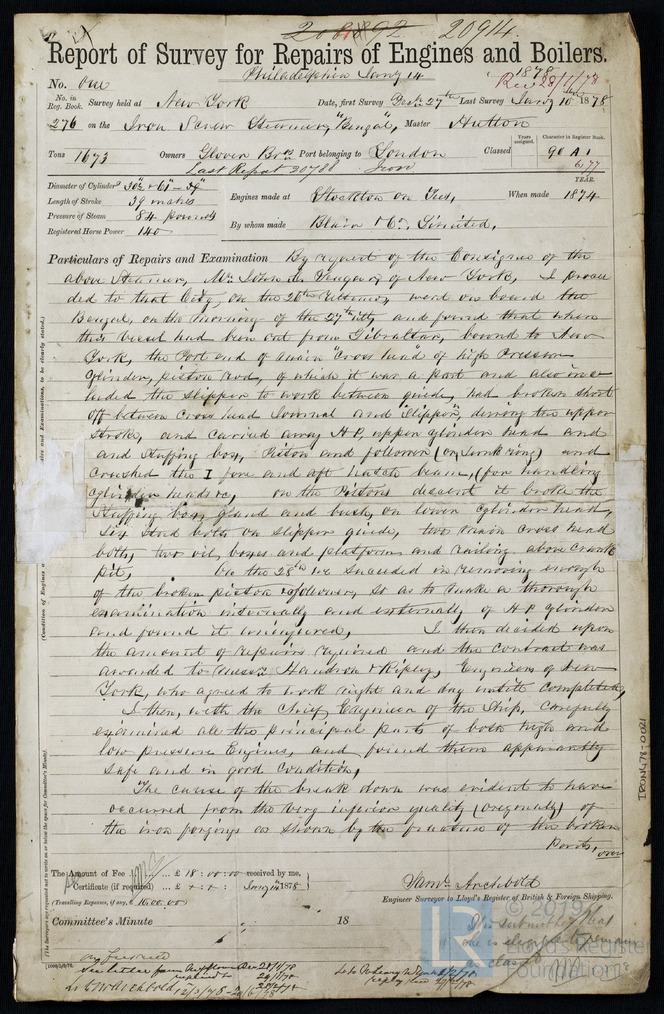 20892 20914.
Report of Survey for Repairs of Engines and Boilers.
Philadelphia Jany 14 1878
No. One Rec 28/1/78
No. in Reg. Book. Survey held at New York Date, first Survey Decr 27th Last Survey Jany 10th 1878
276 on the Iron Screw Steamer, "Bengal", Master Hutton
Tons 1673 Owners Glover Bros Port belonging to London Classed Years assigned. Character in Register Book. 90 A.1
Last Report 20788 Iron 6,77
Diameter of Cylinders Engines made at Stockton on Tees, When made YEAR. 1874
Length of Stroke 39 inches
Pressure of Steam 84 pounds By whom made Blair & Co, Limited,
Registered Horse Power 140
Particulars of Repairs and Examination By request of the Consignee of the
above Steamer, Mr. of New York, I procee
ded to that City, on the 26th Ultimo, went on board the
Bengal, on the morning of the 27th Ulto and found that when
this vessel had been out from Gibraltar, bound to New
York, the Port end of main "cross head of high Pression
Cylinder, piston rod, of which it was a part and also inc
luded the slipper to work between guide, had broken short
off between cross head Journal and "Slipper", during the upper
stroke, and carried away H.P. upper cylinder head and
and stuffing box, Piston and follower (or Junk ring) and
crushed the I fore and aft hatch beam, (for handling
cylinder heads &c, on the Pistons descent it broke the
Stuffing box, gland and bush, on lower cylinder head,
Six stud bolts on slipper guide, two main cross head
bolts, two oil boxes and platforms and railing above crank
pit, On the 28th we succeeded in removing enough
of the broken piston & follower, so as to make a thorough
examination internally and externally of H P cylinder
and found it uninjured, I then decided upon
the amount of repairs required and the contract was
awarded to Messrs Handren & Ripley, Engineers of New
York, who agreed to work night and day untill completed,
I then, with the Chief Engineer of the Ship, carefully
examined all the principal parts of both high and
low pressure Engines, and found them apparantly
safe and in good condition,
The cause of the break down was evident to have
occurred from the very inferior quality (originally) of
the iron forgings as shown by the fracture of the broken
Parts, over
The Amount of Fee ... £ 18 : 00 : 00 received by me,
Certificate (if required) ... £ Jany 14 1878
(Travelling Expenses, if any, £ 16.00.00)
Saml. Archbold
Engineer Surveyor to Lloyd's Register of British & Foreign Shipping.
Committee's Minute 18
is submitted that
one is eligible to remain
as classed
© 2019
Lloyd's Register
Foundation
See letter from
28/1/78
Archbold 12/3/78
IRON478-0021